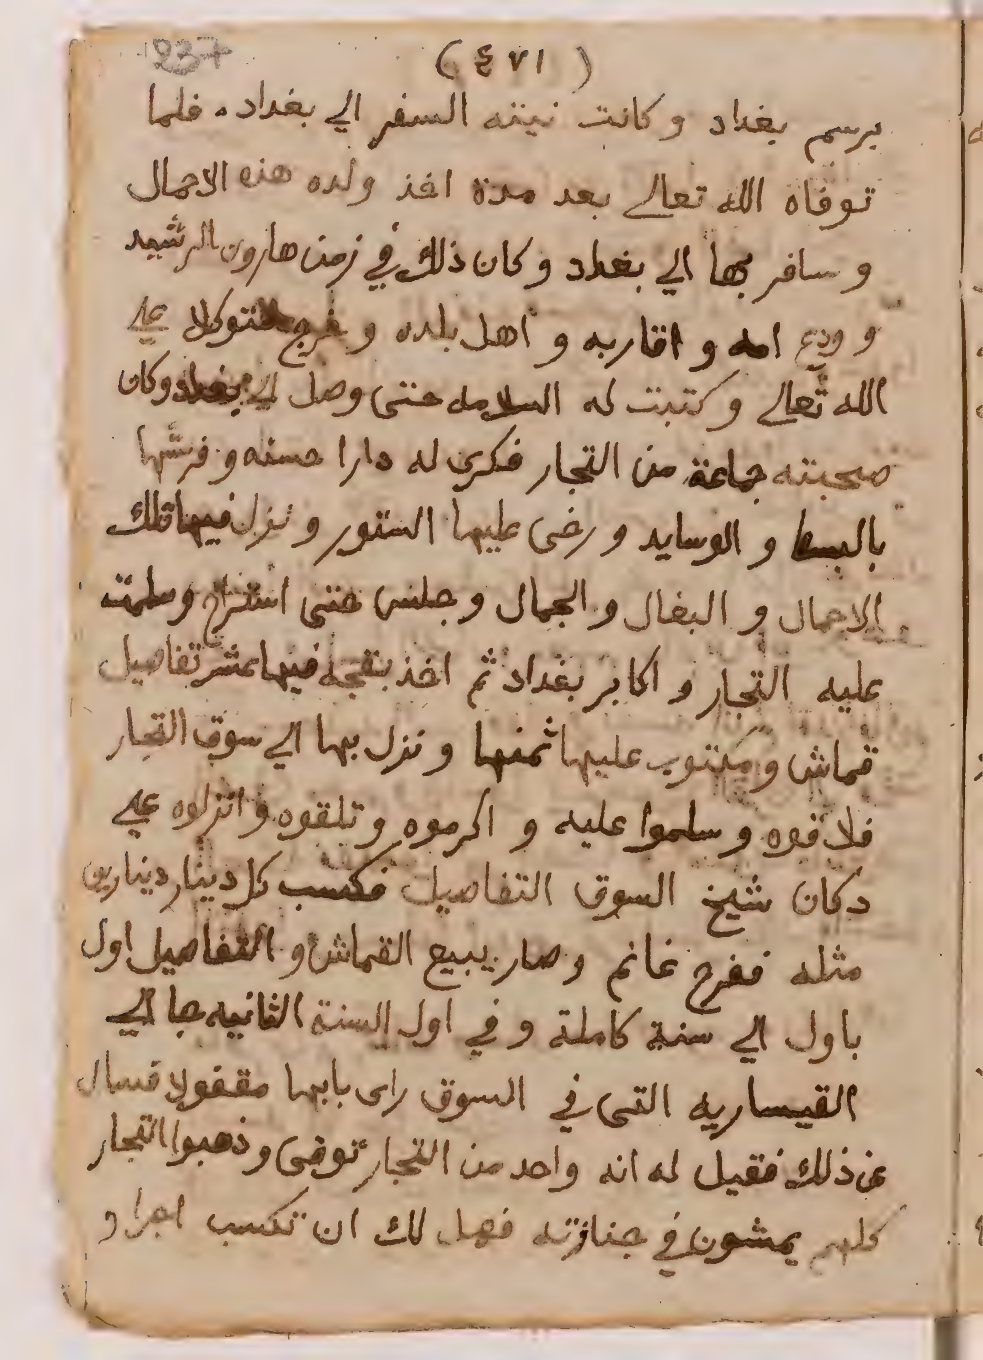 237
(٤٧١)
برسم بغداد و كانت نيته السفر الي بغداد. فلما
توفاه الله تعالي بعد مدة اخذ ولده هذه الاحمال
و سافر بها الي بغداد و كان ذلك في زمن هارون الرشيد
و ودع امه و اقاربه و اهل بلده و خرج متوكلا علي
الله تعالي و كتبت له السلامه حتى وصل الي بغداد وكان
صحبته جماعة من التجار فكري له دارا حسنه و فرشها
بالبسط و الوسايد و رخى عليها الستور و نزل فيها تلك
الاحمال و البغال و الجمال و جلس حتى استراح و سلمت
عليه التجار و اكابر بغداد ثم اخذ بقجه فيها عشر تفاصيل
قماش و مكتوب عليها ثمنها و نزل بها الي سوق التجار
فلاقوه و سلموا عليه و اكرموه و تلقوه و انزلوه علي
دكان شيخ السوق التفاصيل فكسب كل دينار دينارين
مثله ففرح غانم و صار يبيع القماش و التفاصيل اول
باول الي سنة كاملة و في اول السنة الثانيه جا الي
القيساريه التى في السوق راى بابها مقفولا فسال
عن ذلك فقيل له انه واحد من التجار توفى و ذهبوا التجار
كلهم يمشون في جنازته فهل لك ان تكسب اجرا و